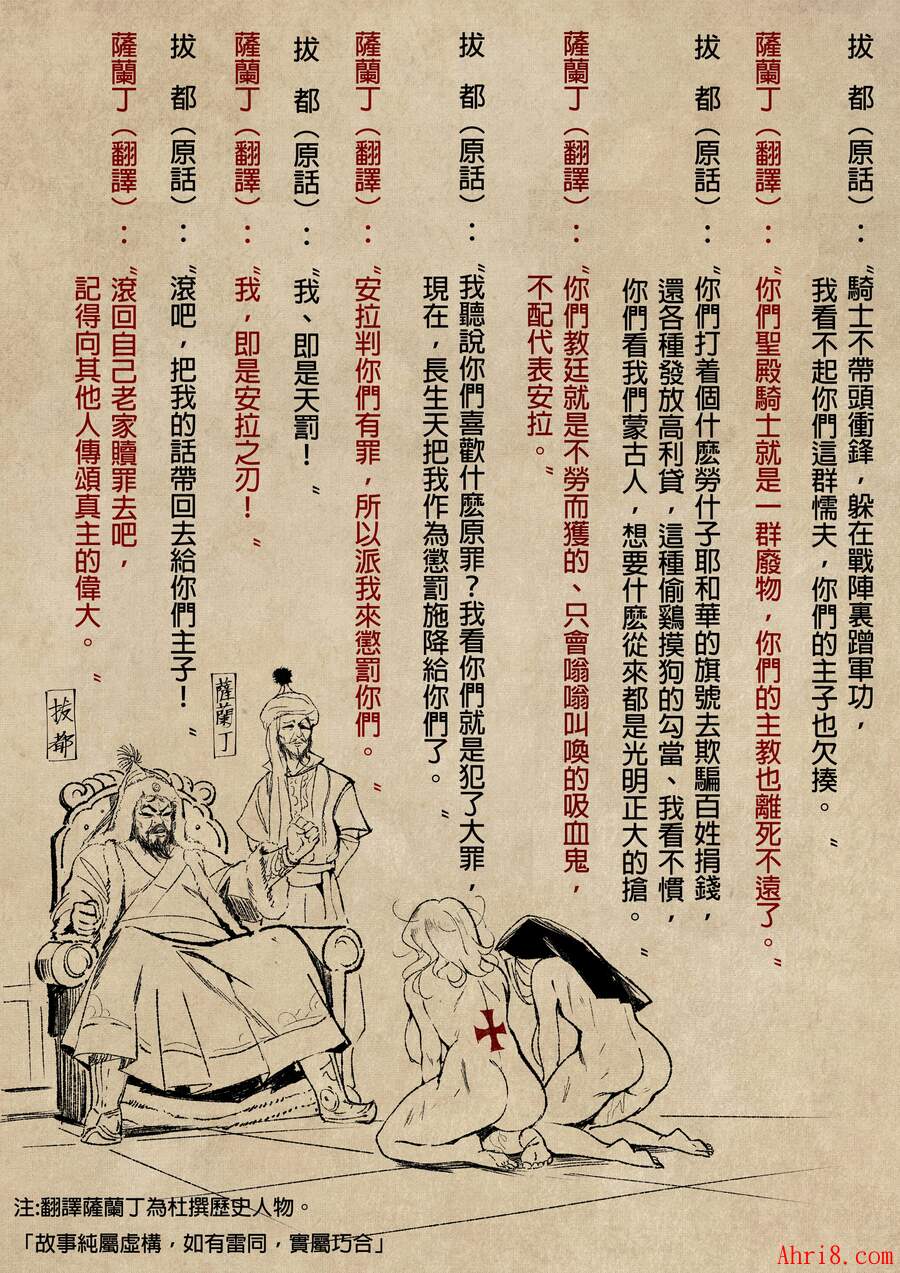 拔 都（原話）：“騎士不帶頭衝鋒，躲在戰陣裏蹭軍功，
我看不起你們這群懦夫，你們的主子也欠揍。”
薩蘭丁（翻譯）：“你們聖殿騎士就是一群廢物，你們的主教也離死不遠了。”
拔 都（原話）：“你們打着個什麽勞什子耶和華的旗號去欺騙百姓捐錢，
還各種發放高利貸，這種偷鷄摸狗的勾當、我看不慣，
你們看我們蒙古人，想要什麽從來都是光明正大的搶。”
薩蘭丁（翻譯）：“你們教廷就是不勞而獲的、只會嗡嗡叫喚的吸血鬼，
不配代表安拉。”
拔 都（原話）：“我聽說你們喜歡什麽原罪？我看你們就是犯了大罪，
現在，長生天把我作為懲罰施降給你們了。”
薩蘭丁（翻譯）：“安拉判你們有罪，所以派我來懲罰你們。”
拔 都（原話）：“我、即是天罰！”
薩蘭丁（翻譯）：“我，即是安拉之刃！”
拔 都（原話）：“滾吧，把我的話帶回去給你們主子！”
薩蘭丁（翻譯）：“滾回自己老家贖罪去吧，
記得向其他人傳頌真主的偉大。”
薩蘭丁
拔都
注:翻譯薩蘭丁為杜撰歷史人物。
「故事純屬虛構，如有雷同，實屬巧合」
Ahri8.com